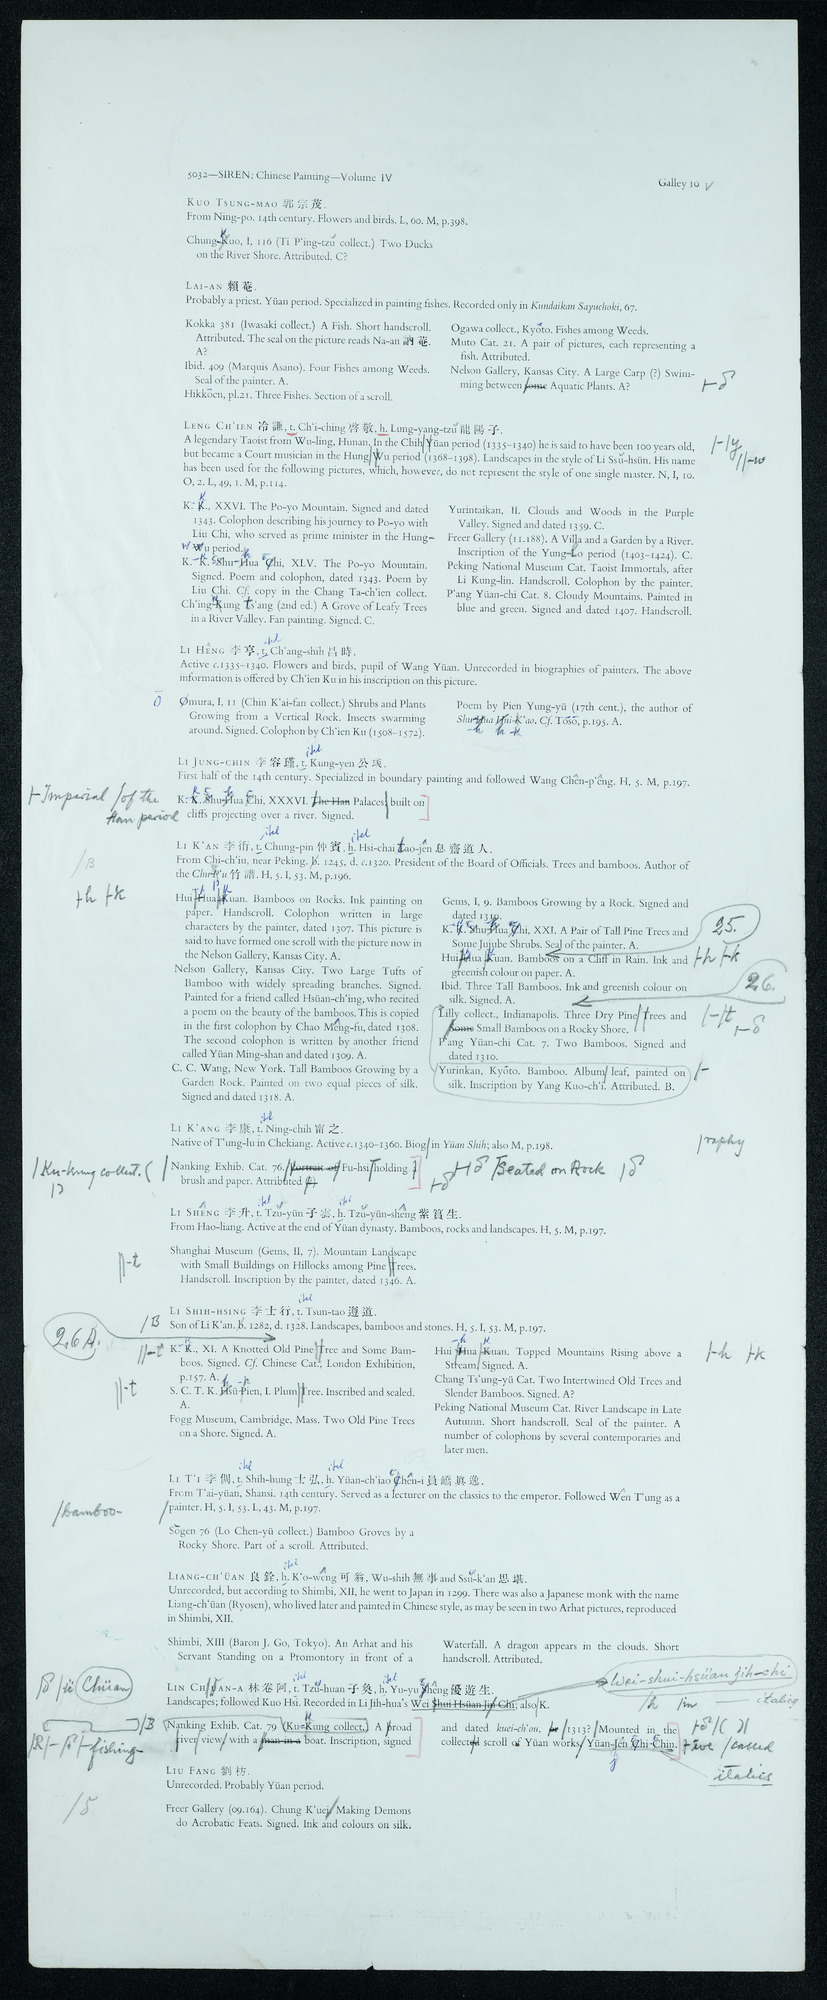 5032—SIREN: Chinese Painting—Volume IV
Galley 10 √
KUO TSUNG-MAO 郭宗茂.
From Ning-po. 14th century. Flowers and birds. L, 60. M, p.398.
Chung-Kuo, I, 116 (Ti P'ing-tzŭ collect.) Two Ducks
on the River Shore. Attributed. C?
LAI-AN 賴菴.
Probably a priest. Yüan period. Specialized in painting fishes. Recorded only in Kundaikan Sayuchoki, 67.
Kokka 381 (Iwasaki collect.) A Fish. Short handscroll.
Attributed. The seal on the picture reads Na-an 訥菴.
A?
Ibid. 409 (Marquis Asano). Four Fishes among Weeds.
Seal of the painter. A.
Hikkōen, pl.21. Three Fishes. Section of a scroll.
Ogawa collect., Kyōto. Fishes among Weeds.
Muto Cat. 21. A pair of pictures, each representing a
fish. Attributed.
Nelson Gallery, Kansas City. A Large Carp (?) Swim-
ming between some Aquatic Plants. A?
LENG CH'IEN 冷謙, t. Ch'i-ching 啓敬, h. Lung-yang-tzŭ 龍陽子.
A legendary Taoist from Wu-ling, Hunan. In the Chih Yüan period (1335–1340) he is said to have been 100 years old,
but became a Court musician in the Hung Wu period (1368–1398). Landscapes in the style of Li Ssŭ-hsün. His name
has been used for the following pictures, which, however, do not represent the style of one single master. N, I, 10.
O, 2. L, 49, 1. M, p.114.
K. K., XXVI. The Po-yo Mountain. Signed and dated
1343. Colophon describing his journey to Po-yo with
Liu Chi, who served as prime minister in the Hung-
Wu period.
K. K. Shu-Hua Chi, XLV. The Po-yo Mountain.
Signed. Poem and colophon, dated 1343. Poem by
Liu Chi. Cf. copy in the Chang Ta-ch'ien collect.
Ch'ing-Kung Ts'ang (2nd ed.) A Grove of Leafy Trees
in a River Valley. Fan painting. Signed. C.
Yurintaikan, II. Clouds and Woods in the Purple
Valley. Signed and dated 1359. C.
Freer Gallery (11.188). A Villa and a Garden by a River.
Inscription of the Yung-Lo period (1403–1424). C.
Peking National Museum Cat. Taoist Immortals, after
Li Kung-lin. Handscroll. Colophon by the painter.
P'ang Yüan-chi Cat. 8. Cloudy Mountains. Painted in
blue and green. Signed and dated 1407. Handscroll.
ital
LI HÊNG 李亨, t. Ch'ang-shih 昌時.
Active c.1335–1340. Flowers and birds, pupil of Wang Yüan. Unrecorded in biographies of painters. The above
information is offered by Ch'ien Ku in his inscription on this picture.
Ō
Ømura, I, 11 (Chin K'ai-fan collect.) Shrubs and Plants
Growing from a Vertical Rock. Insects swarming
around. Signed. Colophon by Ch'ien Ku (1508–1572).
Poem by Pien Yung-yü (17th cent.), the author of
Shu-Hua Hui-K'ao. Cf. Tōsō, p.195. A.
ital
LI JUNG-CHIN 李容瑾, t. Kung-yen 公琰.
First half of the 14th century. Specialized in boundary painting and followed Wang Chên-p'êng. H, 5. M, p.197.
Imperial /of the
Han period
K. K. Shu-Hua Chi, XXXVI. The Han Palaces built on
cliffs projecting over a river. Signed.
ital ital
LI K'AN 李衎, t. Chung-pin 仲賓, h. Hsi-chai Tao-jên 息齋道人.
From Chi-ch'iu, near Peking. b. 1245, d. c.1320. President of the Board of Officials. Trees and bamboos. Author of
the Chu P'u 竹譜. H, 5. I, 53. M, p.196.
Hui Hua Kuan. Bamboos on Rocks. Ink painting on
paper. Handscroll. Colophon written in large
characters by the painter, dated 1307. This picture is
said to have formed one scroll with the picture now in
the Nelson Gallery, Kansas City. A.
Nelson Gallery, Kansas City. Two Large Tufts of
Bamboo with widely spreading branches. Signed.
Painted for a friend called Hsüan-ch'ing, who recited
a poem on the beauty of the bamboos. This is copied
in the first colophon by Chao Mêng-fu, dated 1308.
The second colophon is written by another friend
called Yüan Ming-shan and dated 1309. A.
C. C. Wang, New York. Tall Bamboos Growing by a
Garden Rock. Painted on two equal pieces of silk.
Signed and dated 1318. A.
Gems, I, 9. Bamboos Growing by a Rock. Signed and
dated 1310.
K. K. Shu-Hua Chi, XXI. A Pair of Tall Pine Trees and
Some Jujube Shrubs. Seal of the painter. A.
25.
Hui Hua Kuan. Bamboos on a Cliff in Rain. Ink and
greenish colour on paper. A.
Ibid. Three Tall Bamboos. Ink and greenish colour on
silk. Signed. A.
26.
Lilly collect., Indianapolis. Three Dry Pine Trees and
Some Small Bamboos on a Rocky Shore.
P'ang Yüan-chi Cat. 7. Two Bamboos. Signed and
dated 1310.
Yurinkan, Kyōto. Bamboo. Album leaf, painted on
silk. Inscription by Yang Kuo-ch'i. Attributed. B.
ital
LI K'ANG 李康, t. Ning-chih 甯之.
Native of T'ung-lu in Chekiang. Active c.1340–1360. Biog. in Yüan Shih; also M, p.198.
/raphy
/Ku-kung collect. (
Nanking Exhib. Cat. 76. Portrait of Fu-hsi holding
brush and paper. Attributed
/Seated on Rock
ital ital
LI SHÊNG 李升, t. Tzŭ-yün 子雲, h. Tzŭ-yün-shêng 紫筼生.
From Hao-liang. Active at the end of Yüan dynasty. Bamboos, rocks and landscapes. H, 5. M, p.197.
Shanghai Museum (Gems, II, 7). Mountain Landscape
with Small Buildings on Hillocks among Pine Trees.
Handscroll. Inscription by the painter, dated 1346. A.
ital
LI SHIH-HSING 李士行, t. Tsun-tao 遵道.
Son of Li K'an. b. 1282, d. 1328. Landscapes, bamboos and stones. H, 5. I, 53. M, p.197.
26A.
K. K., XI. A Knotted Old Pine Tree and Some Bam-
boos. Signed. Cf. Chinese Cat., London Exhibition,
p.157. A.
S. C. T. K. Hsü Pien, I. Plum Tree. Inscribed and sealed.
A.
Fogg Museum, Cambridge, Mass. Two Old Pine Trees
on a Shore. Signed. A.
Hui Hua Kuan. Topped Mountains Rising above a
Stream. Signed. A.
Chang Ts'ung-yü Cat. Two Intertwined Old Trees and
Slender Bamboos. Signed. A?
Peking National Museum Cat. River Landscape in Late
Autumn. Short handscroll. Seal of the painter. A
number of colophons by several contemporaries and
later men.
ital ital
LI T'I 李倜, t. Shih-hung 士弘, h. Yüan-ch'iao Chên-i 員嶠真逸.
From T'ai-yüan, Shansi. 14th century. Served as a lecturer on the classics to the emperor. Followed Wên T'ung as a
/bamboo-
painter. H, 5. I, 53. L, 43. M, p.197.
Sōgen 76 (Lo Chen-yü collect.) Bamboo Groves by a
Rocky Shore. Part of a scroll. Attributed.
ital
LIANG-CH'ÜAN 良銓, h. K'o-wêng 可翁, Wu-shih 無事 and Ssŭ-k'an 思堪.
Unrecorded, but according to Shimbi, XII, he went to Japan in 1299. There was also a Japanese monk with the name
Liang-ch'üan (Ryosen), who lived later and painted in Chinese style, as may be seen in two Arhat pictures, reproduced
in Shimbi, XII.
Shimbi, XIII (Baron J. Go, Tokyo). An Arhat and his
Servant Standing on a Promontory in front of a
Waterfall. A dragon appears in the clouds. Short
handscroll. Attributed.
ital ital
Chüan
LIN CHÜAN-A 林卷阿, t. Tzŭ-huan 子奐, h. Yu-yu Shêng 優遊生.
Landscapes; followed Kuo Hsi. Recorded in Li Jih-hua's Wei Shui Hsüan Jih Chi; also K.
Wei-shui-hsüan jih-chi
italics
fishing-
Nanking Exhib. Cat. 79 (Ku-Kung collect.) A broad
river view with a man in a boat. Inscription, signed
and dated kuei-ch'ou, 1313? Mounted in the
collected scroll of Yüan works Yüan-Jên Chi-Chin.
+ive /called
italics
LIU FANG 劉枋.
Unrecorded. Probably Yüan period.
Freer Gallery (09.164). Chung K'uei Making Demons
do Acrobatic Feats. Signed. Ink and colours on silk.